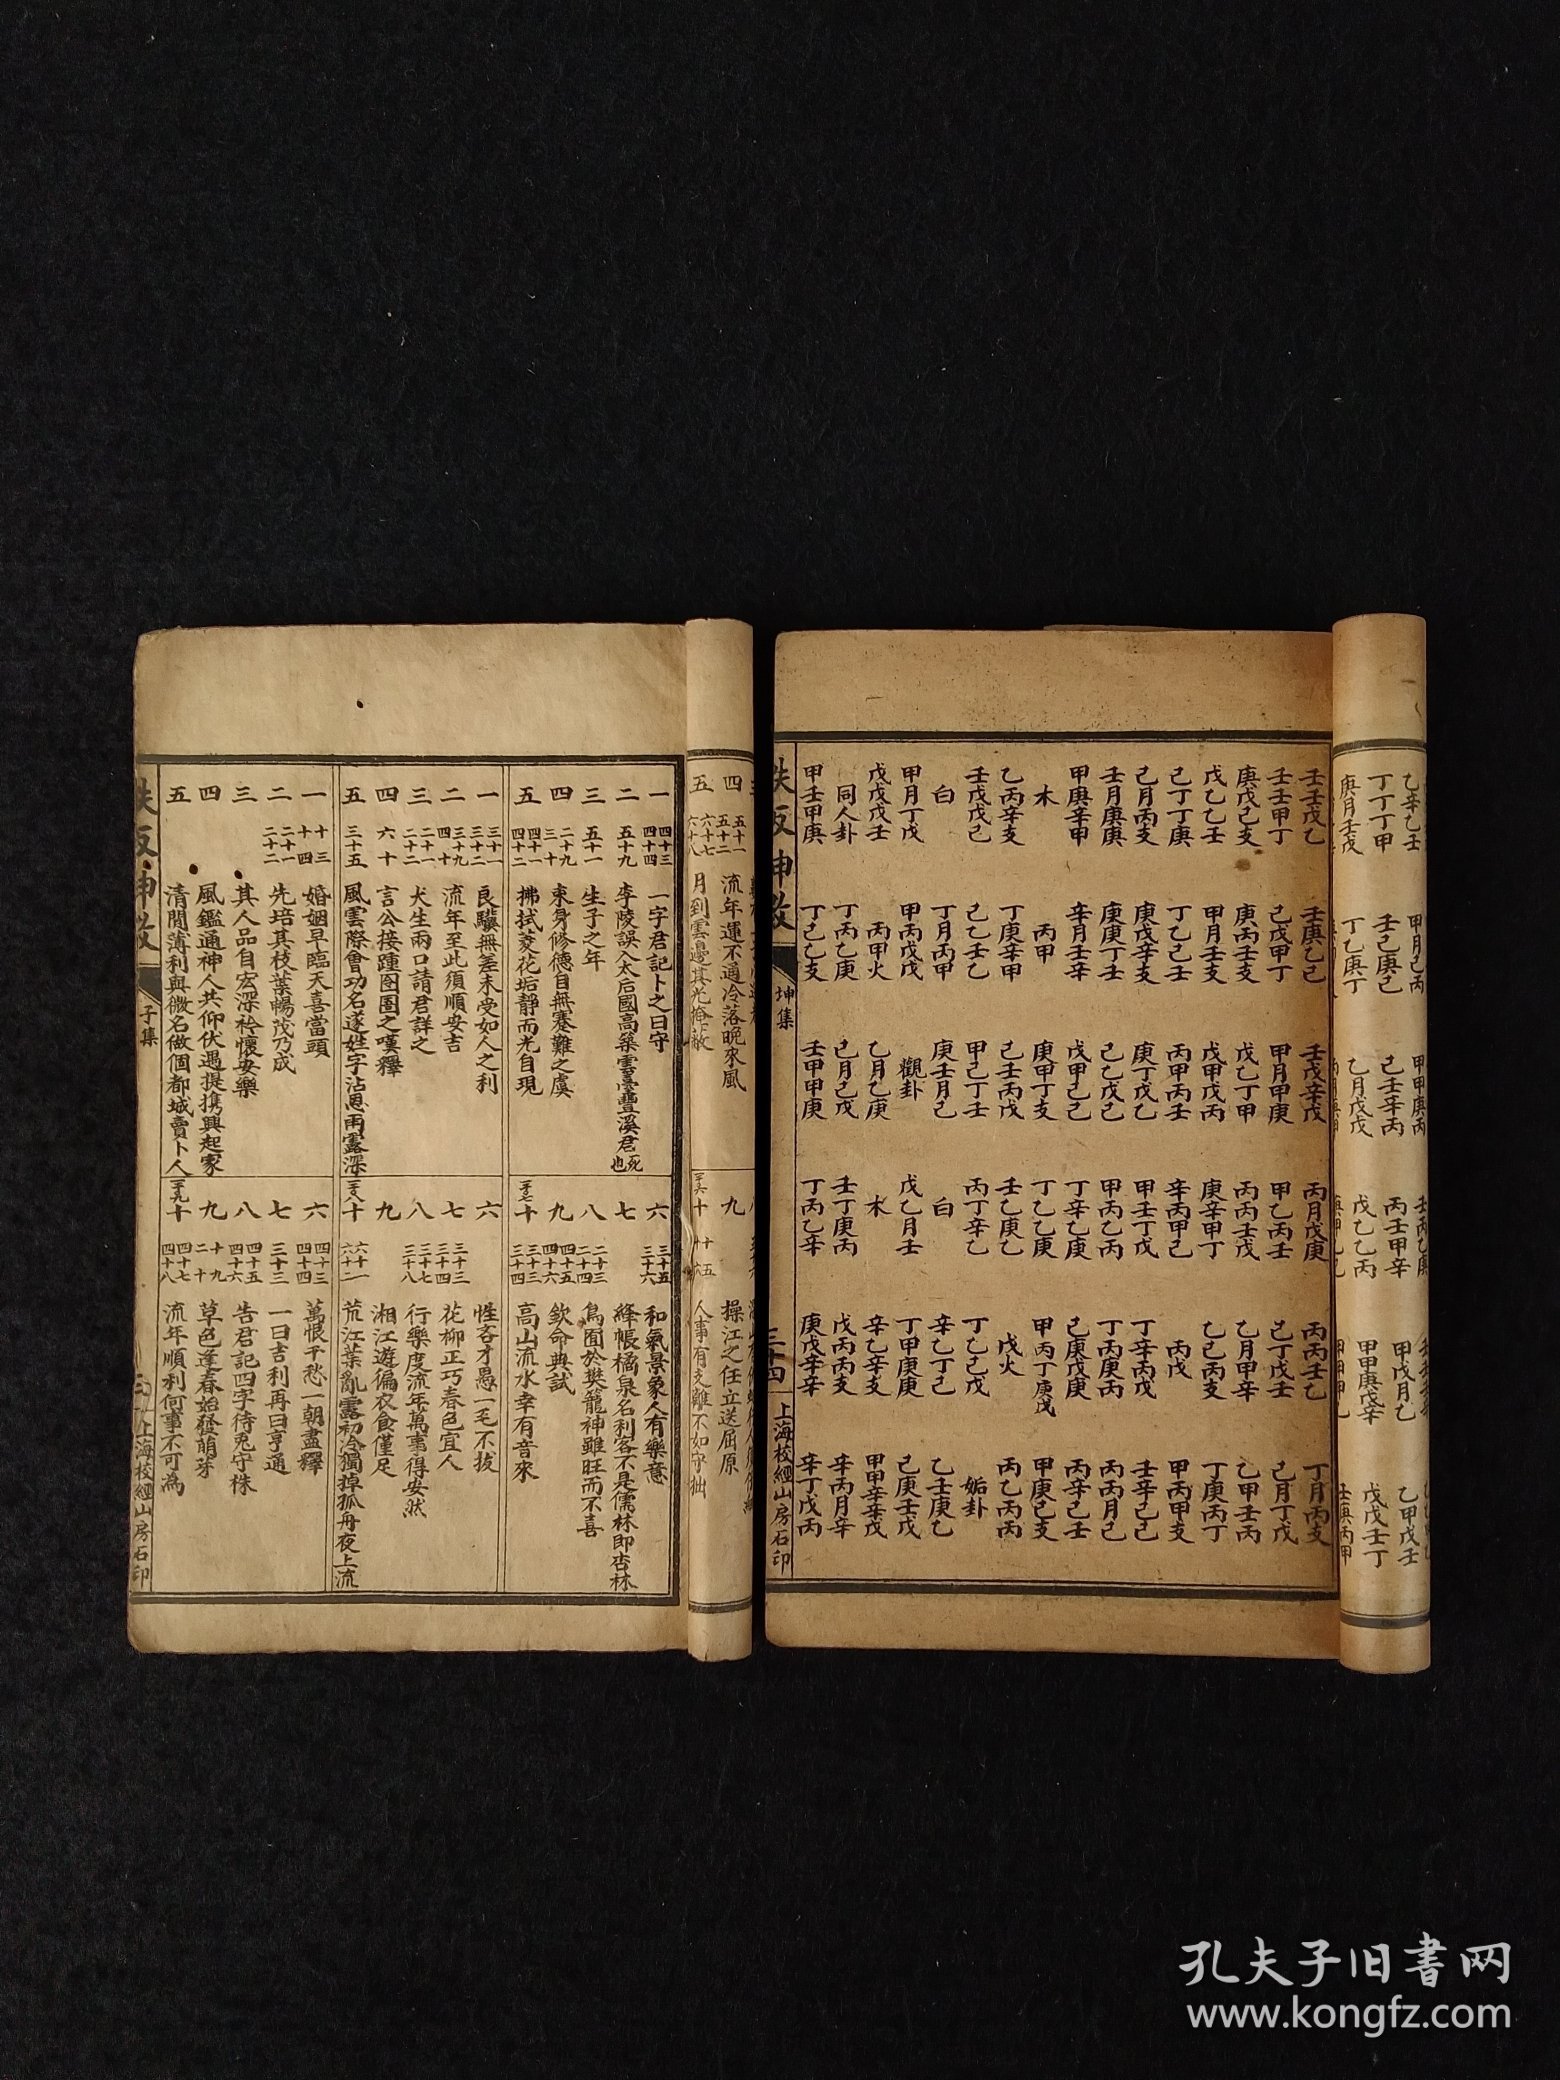 四 五十一 五十二 流年運不通冷落晚來風
五 六十七 六十八 月到雲邊其光掩蔽
九 操江之任立送屈原
十 十五 十六 人事有支離不如守拙
一 四十三 四十四 一字君記卜之曰守
二 五十九 李陵誤入太后國高築雲臺豐溪君死也
三 五十一 生子之年
四 二十九 三十 束身修德自無蹇難之虞
五 四十一 四十二 拂拭菱花垢靜而光自現
六 三十五 三十六 和氣景象人有樂意
七 絳帳橘泉名利客不是儒林即杏林
八 二十三 二十四 鳥囿於樊籠神雖旺而不喜
九 四十五 四十六 欽命典試
十 三十三 三十四 高山流水幸有音來
一 三十一 三十二 良驥無差未受如人之利
二 三十九 四十 流年至此須順安吉
三 二十一 二十二 犬生兩口請君詳之
四 六十 言公接踵囹圄之嘆釋
五 三十五 風雲際會功名遂姓字沾恩雨露深
六 性吝才愚一毛不拔
七 三十三 三十四 花柳正巧春色宜人
八 三十七 三十八 行樂度流年萬事得安然
九 湘江遊徧衣食僅足
十 六十一 六十二 荒江葉亂露初冷獨掉孤舟夜上流
一 十三 十四 婚姻早臨天喜當頭
二 二十一 二十二 先培其枝葉暢茂乃成
三 其人品自宏深衿懷安樂
四 風鑑通神人共仰伏遇提携興起家
五 清閒薄利與微名做個都城賣卜人
六 四十三 四十四 萬恨千愁一朝盡釋
七 三十三 一曰吉利再曰亨通
八 四十五 四十六 告君記四字待兎守株
九 十九 二十 草色逢春始發萌芽
十 四十七 四十八 流年順利何事不可為
鉄板神数 子集 上海校經山房石印
乙辛乙壬 甲月己丙 甲甲庚丙
丁丁丁甲 壬己庚己 己壬辛丙 丙壬甲辛 甲戊月乙 乙甲戊壬
庚月壬戊 丁乙庚丁 乙月戊戊 戊乙乙丙 甲甲庚戊辛 戊戊壬丁
壬壬戊乙 壬庚乙己 壬戊辛戊 丙月戊庚 丙丙壬乙 丁月丙支
壬壬甲丁 己戊甲丁 甲月甲庚 甲乙丙壬 己丁戊壬 己月丁戊
庚戊己支 庚丙壬支 戊乙丁甲 丙丙壬戊 乙月甲辛 乙甲壬丙
戊乙乙壬 甲月壬支 戊甲戊丙 庚辛甲丁 乙己丙支 丁庚丙丁
己丁丁庚 丁乙己壬 丙甲丙壬 辛丙甲己 丙戊 甲丙甲支
己月丙支 庚戊辛支 庚丁戊乙 甲壬丁戊 丁辛丙戊 壬辛己己
壬月庚庚 庚庚丁壬 己乙戊己 甲丙乙丙 丁丙庚丙 丙丙月己
甲庚辛甲 辛月壬辛 戊甲己己 丁辛乙庚 己庚戊庚 丙辛己壬
木 丙甲 庚甲丁支 丁乙乙庚 甲丙丁庚戊 甲庚己支
乙丙辛支 丁庚辛甲 己壬丙戊 壬乙庚乙 戊火 丙乙丙丙
壬戊戊己 己乙壬乙 甲己丁壬 丙丁辛乙 丁乙己戊 姤卦
白 丁月丙甲 庚壬月己 白 辛乙丁己 乙壬庚乙
甲月丁戊 甲丙戊戊 觀卦 戊乙月壬 丁甲庚庚 己庚壬戊
戊戊戊壬 丙甲火 乙月乙庚 木 辛乙辛支 甲甲辛辛戊
同人卦 丁丙乙庚 己月己戊 壬丁庚丙 戊丙丙支 辛丙月辛
甲壬甲庚 丁己乙支 壬甲甲庚 丁丙乙辛 庚戊辛辛 辛丁戊丙
鉄板神数 坤集 三十四 上海校經山房石印
孔夫子旧书网
www.kongfz.com